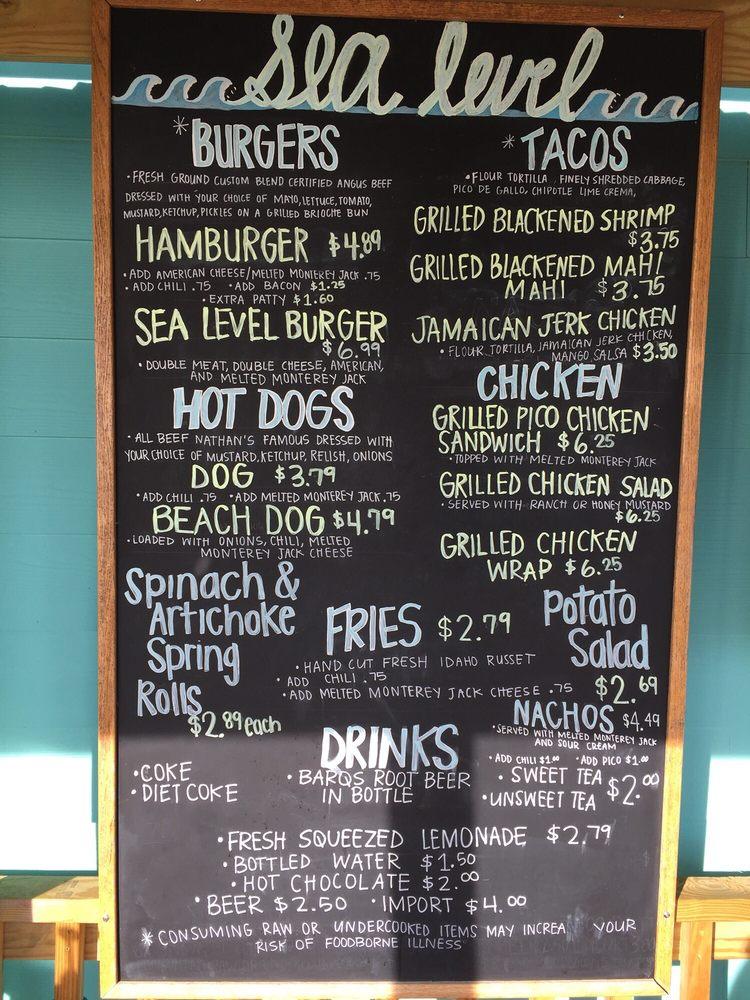 Sea Level
*BURGERS
• FRESH GROUND CUSTOM BLEND CERTIFIED ANGUS BEEF
DRESSED WITH YOUR CHOICE OF MAYO, LETTUCE, TOMATO,
MUSTARD, KETCHUP, PICKLES ON A GRILLED BRIOCHE BUN
HAMBURGER $4.89
• ADD AMERICAN CHEESE/MELTED MONTEREY JACK .75
• ADD CHILI .75 • ADD BACON $1.25
• EXTRA PATTY $1.60
SEA LEVEL BURGER
$6.99
• DOUBLE MEAT, DOUBLE CHEESE, AMERICAN,
AND MELTED MONTEREY JACK
HOT DOGS
• ALL BEEF NATHAN'S FAMOUS DRESSED WITH
YOUR CHOICE OF MUSTARD, KETCHUP, RELISH, ONIONS
DOG $3.79
• ADD CHILI .75 • ADD MELTED MONTEREY JACK .75
BEACH DOG $4.79
• LOADED WITH ONIONS, CHILI, MELTED
MONTEREY JACK CHEESE
*TACOS
• FLOUR TORTILLA, FINELY SHREDDED CABBAGE,
PICO DE GALLO, CHIPOTLE LIME CREMA,
GRILLED BLACKENED SHRIMP
$3.75
GRILLED BLACKENED MAHI
MAHI $3.75
JAMAICAN JERK CHICKEN
• FLOUR TORTILLA, JAMAICAN JERK CHICKEN,
MANGO SALSA $3.50
CHICKEN
GRILLED PICO CHICKEN
SANDWICH $6.25
• TOPPED WITH MELTED MONTEREY JACK
GRILLED CHICKEN SALAD
• SERVED WITH RANCH OR HONEY MUSTARD
$6.25
GRILLED CHICKEN
WRAP $6.25
Spinach &
Artichoke
Spring
Rolls
$2.89 each
FRIES $2.79
• HAND CUT FRESH IDAHO RUSSET
• ADD CHILI .75
• ADD MELTED MONTEREY JACK CHEESE .75
Potato
Salad
$2.69
NACHOS $4.49
• SERVED WITH MELTED MONTEREY JACK
AND SOUR CREAM
• ADD CHILI $1.00 • ADD PICO $1.00
DRINKS
• COKE
• DIET COKE
• BARQS ROOT BEER
IN BOTTLE
• SWEET TEA
• UNSWEET TEA $2.00
• FRESH SQUEEZED LEMONADE $2.79
• BOTTLED WATER $1.50
• HOT CHOCOLATE $2.00
• BEER $2.50 • IMPORT $4.00
* CONSUMING RAW OR UNDERCOOKED ITEMS MAY INCREA YOUR
RISK OF FOODBORNE ILLNESS